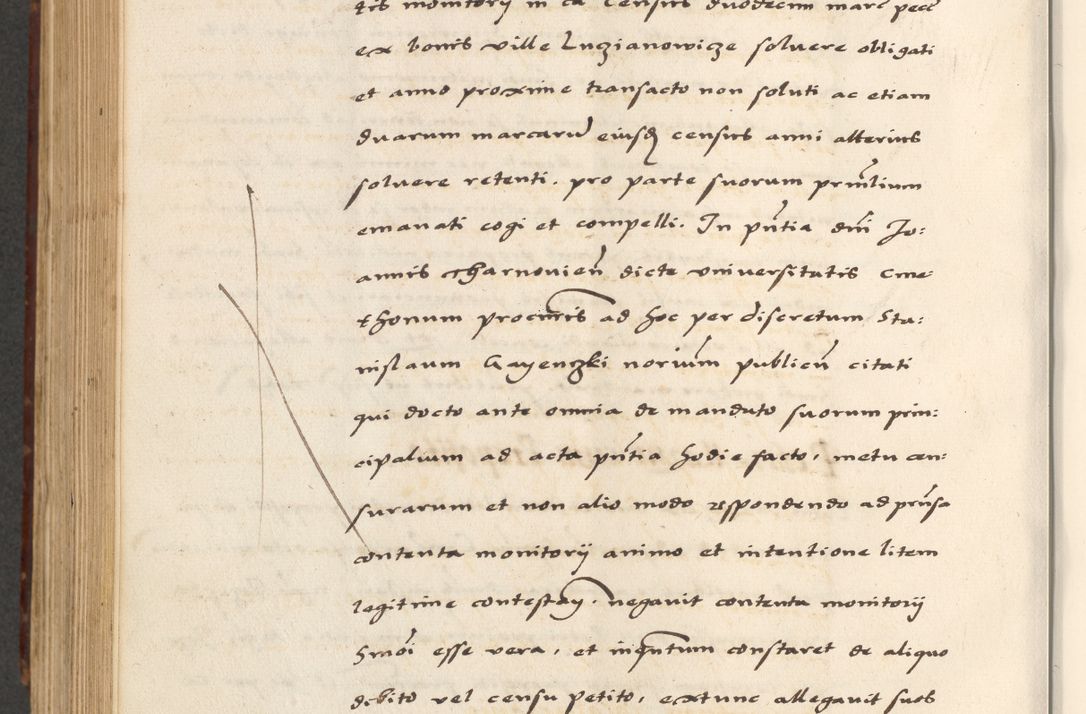 tis monitorij in ea census duodecim marc pecc
ex bonis ville Luczianowicze soluere obligati
et anno proxime transacto non soluti ac etiam
duarum marcaru eiusdq census anni alterius
soluere retenti. pro parte suorum prīnlium
emanati cogi et compelli. In pn̄tia dn̄i Jo:
annis Charnovien̄ dicte universitatis cme-
thonum procuris ad hoc per discretum Sta:
nislaum Gayenczki noriūm publicū citati
qui docto ante omnia de mandato suorum prin:
cipalium ad acta pn̄tia hodie facto, metu cen:
surarum et non alio modo respondendo ad prn̄sa
contenta monitorij animo et intentione litem
legitime contestan. negavit contenta monitorij
hmōi esse vera, et inqntum constaret de aliquo
debito vel censu petito, extunc allegavit suos